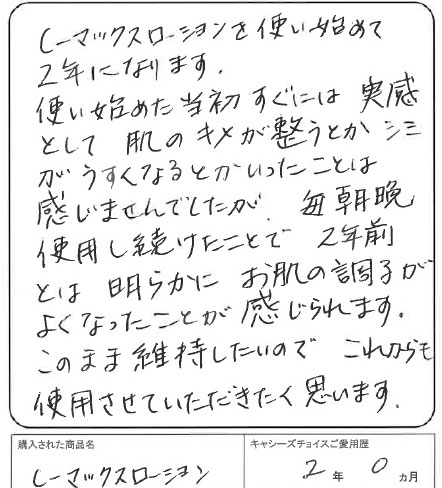 Cーマックスローションを使い始めて
2年になります。
使い始めた当初すぐには 実感
として 肌のキメが整うとか シミ
がうすくなるとかいったことは
感じませんでしたが、毎朝晩
使用し続けたことで 2年前
とは 明らかに お肌の調子が
よくなったことが感じられます。
このまま維持したいので これからも
使用させていただきたく思います。
購入された商品名 キャシーズチョイスご愛用歴
Cーマックスローション 2年 0ヵ月